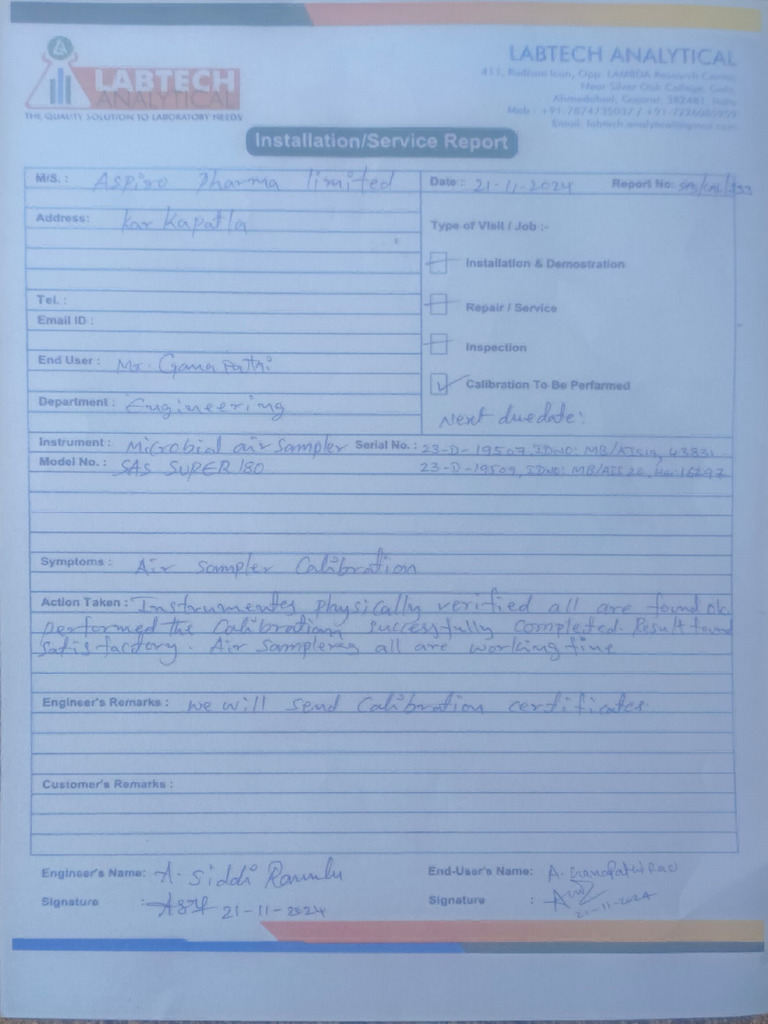 LABTECH
ANALYTICAL
THE QUALITY SOLUTION TO LABORATORY NEEDS
LABTECH ANALYTICAL
Opp. LAMBDA Research
Near Silver Oak College,
Ahmedabad, Gujarat,
Installation/Service Report
M/S. : Aspiro Pharma limited
Date : 21-11-2024 Report No:
Address: Kar Kapatla
Type of Visit / Job :-
Installation & Demostration
Tel. :
Repair / Service
Email ID :
Inspection
End User : Mr. Gana Pathi
Calibration To Be Perfarmed
Department : Engineering
Next due date:
Instrument : Microbial air Sampler Serial No. : 23-D-19507,
Model No. : SAS SUPER 180 23-D-19509,
Symptoms : Air Sampler Calibration
Action Taken : Instrumentes physically verified all are found ok.
performed the Calibrations successfully completed. Result found
Satisfactory. Air Samplers all are working fine
Engineer's Remarks : we will send Calibration certificates
Customer's Remarks :
Engineer's Name: A. Siddi Ramulu End-User's Name:
Signature : 21-11-2024 Signature : 21-11-2024